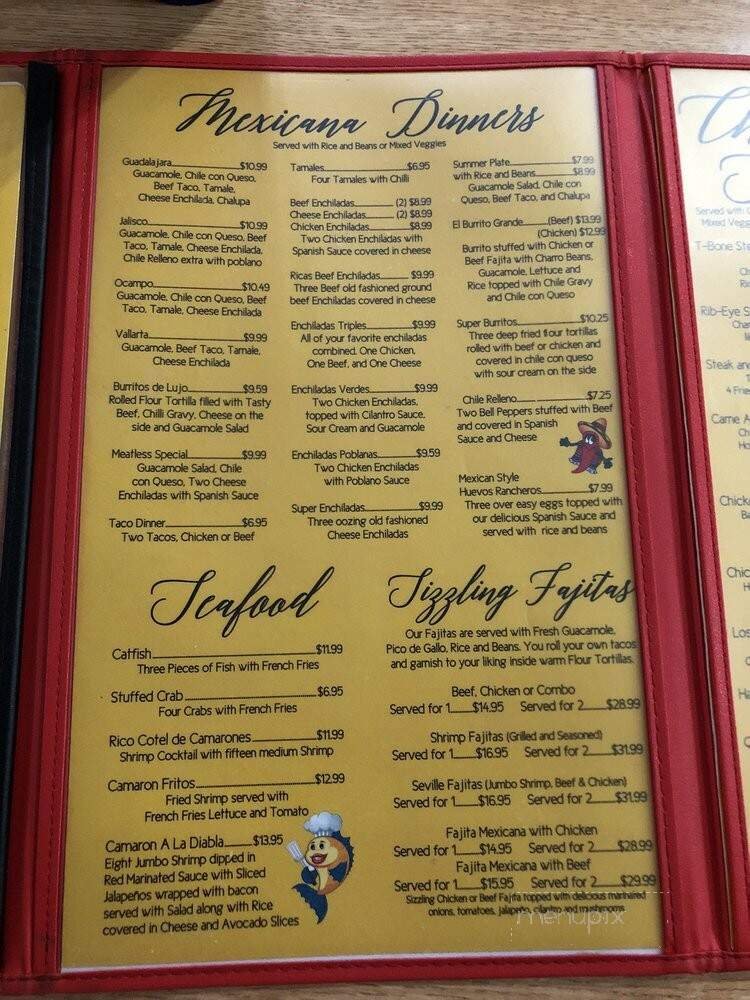 Mexicana Dinners
Served with Rice and Beans or Mixed Veggies
Guadalajara $10.99
Guacamole, Chile con Queso,
Beef Taco, Tamale,
Cheese Enchilada, Chalupa
Jalisco $10.99
Guacamole, Chile con Queso, Beef
Taco, Tamale, Cheese Enchilada,
Chile Relleno extra with poblano
Ocampo $10.49
Guacamole, Chile con Queso, Beef
Taco, Tamale, Cheese Enchilada
Vallarta $9.99
Guacamole, Beef Taco, Tamale,
Cheese Enchilada
Burritos de Lujo $9.59
Rolled Flour Tortilla filled with Tasty
Beef, Chilli Gravy, Cheese on the
side and Guacamole Salad
Meatless Special $9.99
Guacamole Salad, Chile
con Queso, Two Cheese
Enchiladas with Spanish Sauce
Taco Dinner $6.95
Two Tacos, Chicken or Beef
Tamales $6.95
Four Tamales with Chilli
Beef Enchiladas (2) $8.99
Cheese Enchiladas (2) $8.99
Chicken Enchiladas $8.99
Two Chicken Enchiladas with
Spanish Sauce covered in cheese
Ricas Beef Enchiladas $9.99
Three Beef old fashioned ground
beef Enchiladas covered in cheese
Enchiladas Triples $9.99
All of your favorite enchiladas
combined. One Chicken,
One Beef, and One Cheese
Enchiladas Verdes $9.99
Two Chicken Enchiladas,
topped with Cilantro Sauce,
Sour Cream and Guacamole
Enchiladas Poblanas $9.59
Two Chicken Enchiladas
with Poblano Sauce
Super Enchiladas $9.99
Three oozing old fashioned
Cheese Enchiladas
Summer Plate $7.99
with Rice and Beans $8.99
Guacamole Salad, Chile con
Queso, Beef Taco, and Chalupa
El Burrito Grande (Beef) $13.99
(Chicken) $12.99
Burrito stuffed with Chicken or
Beef Fajita with Charro Beans,
Guacamole, Lettuce and
Rice topped with Chile Gravy
and Chile con Queso
Super Burritos $10.25
Three deep fried flour tortillas
rolled with beef or chicken and
covered in chile con queso
with sour cream on the side
Chile Relleno $7.25
Two Bell Peppers stuffed with Beef
and covered in Spanish
Sauce and Cheese
Mexican Style
Huevos Rancheros $7.99
Three over easy eggs topped with
our delicious Spanish Sauce and
served with rice and beans
Seafood
Catfish $11.99
Three Pieces of Fish with French Fries
Stuffed Crab $6.95
Four Crabs with French Fries
Rico Cotel de Camarones $11.99
Shrimp Cocktail with fifteen medium Shrimp
Camaron Fritos $12.99
Fried Shrimp served with
French Fries Lettuce and Tomato
Camaron A La Diabla $13.95
Eight Jumbo Shrimp dipped in
Red Marinated Sauce with Sliced
Jalapeños wrapped with bacon
served with Salad along with Rice
covered in Cheese and Avocado Slices
Sizzling Fajitas
Our Fajitas are served with Fresh Guacamole,
Pico de Gallo, Rice and Beans. You roll your own tacos
and garnish to your liking inside warm Flour Tortillas.
Beef, Chicken or Combo
Served for 1 $14.95 Served for 2 $28.99
Shrimp Fajitas (Grilled and Seasoned)
Served for 1 $16.95 Served for 2 $31.99
Seville Fajitas (Jumbo Shrimp, Beef & Chicken)
Served for 1 $16.95 Served for 2 $31.99
Fajita Mexicana with Chicken
Served for 1 $14.95 Served for 2 $28.99
Fajita Mexicana with Beef
Served for 1 $15.95 Served for 2 $29.99
Sizzling Chicken or Beef Fajita topped with delicious marinated
onions, tomatoes, jalapeño, cilantro and mushrooms
menupix
Served with
Mixed
T-Bone
Rib-Eye
Steak